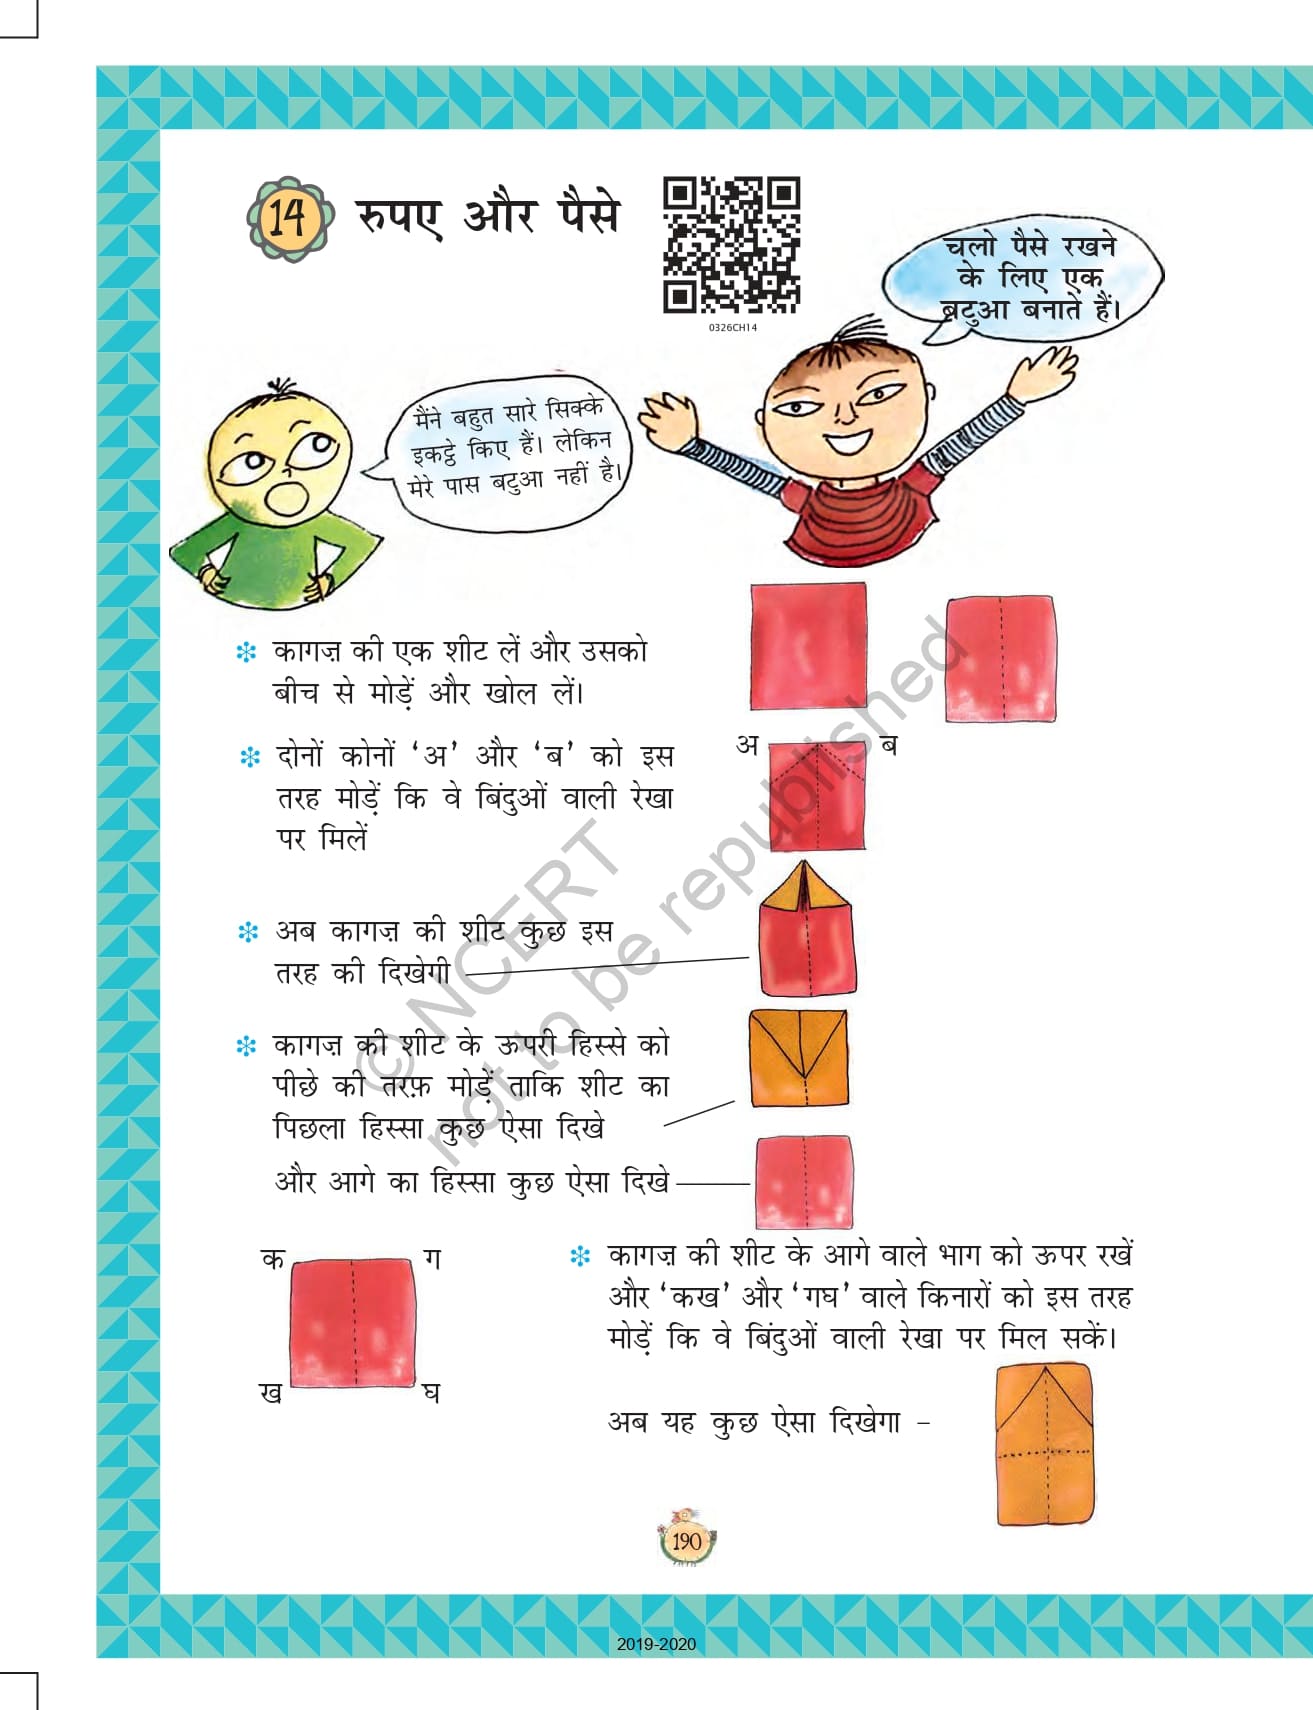 14 रुपए और पैसे
0326CH14
चलो पैसे रखने
के लिए एक
बटुआ बनाते हैं।
मैंने बहुत सारे सिक्के
इकट्ठे किए हैं। लेकिन
मेरे पास बटुआ नहीं है।
कागज़ की एक शीट लें और उसको
बीच से मोड़ें और खोल लें।
दोनों कोनों ‘अ’ और ‘ब’ को इस
तरह मोड़ें कि वे बिंदुओं वाली रेखा
पर मिलें
अ ब
अब कागज़ की शीट कुछ इस
तरह की दिखेगी
कागज़ की शीट के ऊपरी हिस्से को
पीछे की तरफ़ मोड़ें ताकि शीट का
पिछला हिस्सा कुछ ऐसा दिखे
और आगे का हिस्सा कुछ ऐसा दिखे
क ग
ख घ
कागज़ की शीट के आगे वाले भाग को ऊपर रखें
और ‘कख’ और ‘गघ’ वाले किनारों को इस तरह
मोड़ें कि वे बिंदुओं वाली रेखा पर मिल सकें।
अब यह कुछ ऐसा दिखेगा –
© NCERT
not to be republished
190
2019-2020